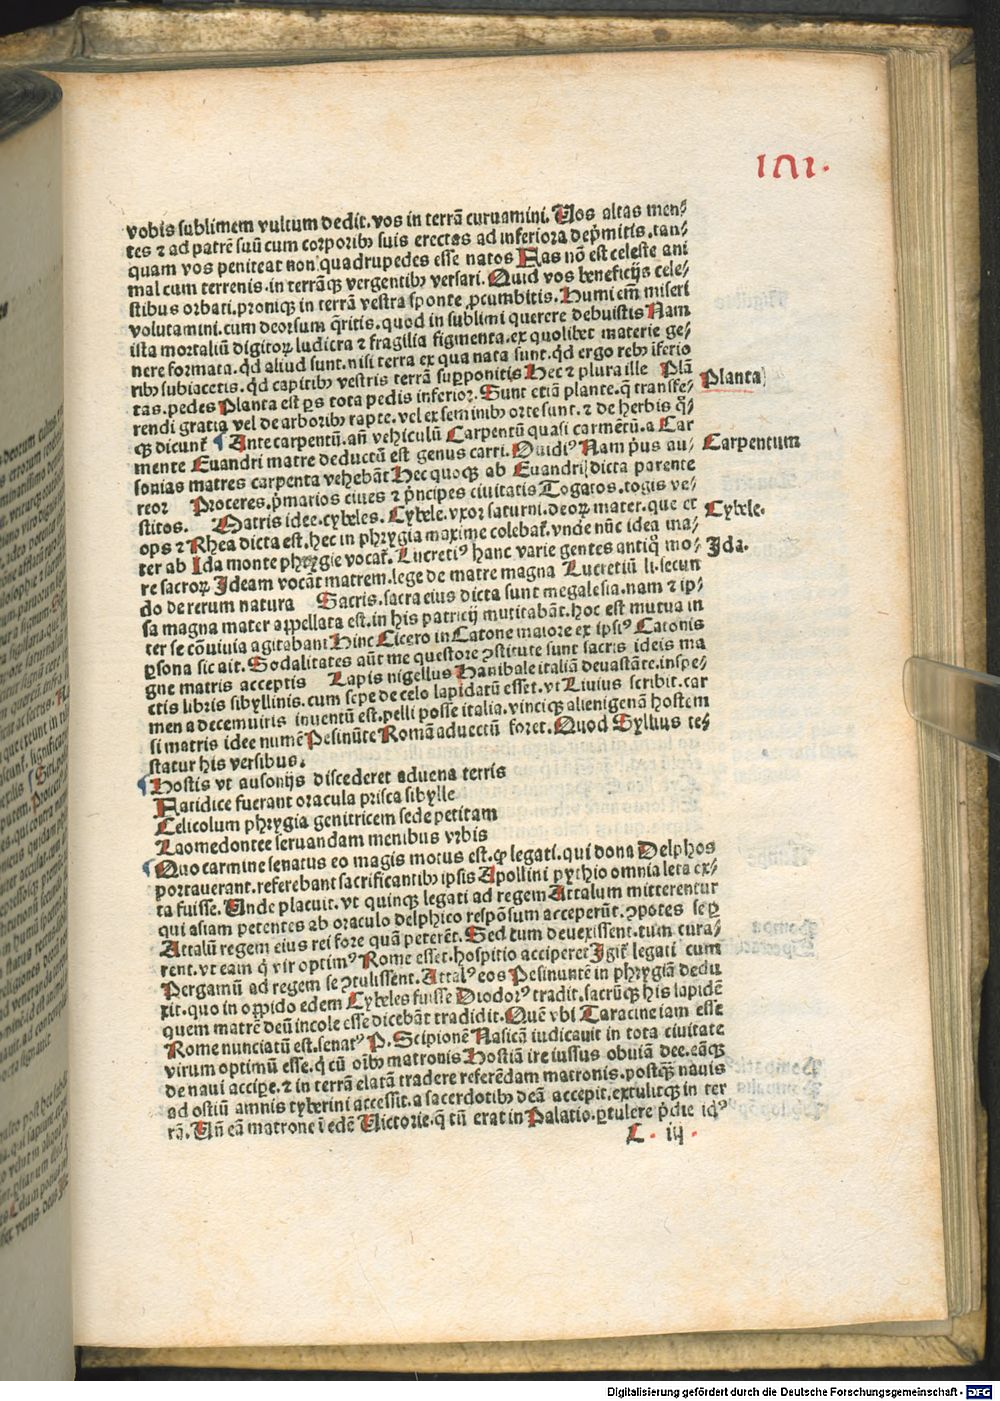 101.
vobis sublimem vultum dedit. vos in terrā curuamini. Uos altas men⸗
tes ⁊ ad patrē suū cum corporibꝰ suis erectas ad inferiora dep̄mitis. tan⸗
quam vos peniteat non quadrupedes esse natos Fas nō est celeste ani
mal cum terrenis. in terrāqꝫ vergentibꝰ versari. Quid vos beneficijs cele⸗
stibus orbati. proniqꝫ in terrā vestra sponte ꝓcumbitis. Humi em̄ miseri
volutamini. cum deorsum q̄ritis. quod in sublimi querere debuistis Nam
ista mortaliū digitoꝝ ludicra ⁊ fragilia figmenta. ex quolibet materie ge⸗
nere formata. qd aliud sunt. nisi terra ex qua nata sunt. qd ergo rebꝰ īferio
ribꝰ subiacetis. qd capitibꝰ vestris terrā suꝑponitis Hec ⁊ plura ille Plā
tas. pedes Planta est ꝑs tota pedis inferior. Sunt etiā plante. q̄ transfe⸗
rendi gratia vel de arboribꝰ rapte. vel ex seminibꝰ orte sunt. ⁊ de herbis q̄⸗
qꝫ dicunt̄ ¶ Ante carpentū. an̄ vehiculū Carpentū quasi carmētū. a Car
mente Euandri matre deductū est genus carri. Ouidiꝰ Nam p̄us au⸗
sonias matres carpenta vehebāt Hec quoqꝫ ab Euandri dicta parente
reor Proceres. p̄marios ciues ⁊ p̄ncipes ciuitatis Togatos. togis ve⸗
stitos. Matris idee. cybeles. Cybele. vxor saturni. deoꝝ mater. que et
ops ⁊ Rhea dicta est. hec in phrygia maxime colebat̄. vnde nūc idea ma⸗
ter ab Ida monte phrygie vocat̄. Lucretiꝰ hanc varie gentes antiq̄ mo⸗
re sacroꝝ Ideam vocāt matrem. lege de matre magna Lucretiū li. secun
do de rerum natura Sacris. sacra eius dicta sunt megalesia. nam ⁊ ip⸗
sa magna mater appellata est. in his patricij mutitabāt. hoc est mutua in
ter se cōuiuia agitabant Hinc Cicero in Catone maiore ex ipsiꝰ Catonis
ꝑsona sic ait. Sodalitates aūt me questore ꝯstitute sunt sacris ideis ma
gne matris acceptis Lapis nigellus Hanibale italiā deuastāte. inspe⸗
ctis libris sibyllinis. cum sepe de celo lapidatū esset. vt Liuius scribit. car
men a decemuiris inuentū est. pelli posse italia. vinciqꝫ alienigenā hostem
si matris idee numē Pesinūte Romā aduectū foret. Quod Syllius te⸗
statur his versibus.
¶ Hostis vt ausonijs discederet aduena terris
Fatidice fuerant oracula prisca sibylle
Celicolum phrygia genitricem sede petitam
Laomedontee seruandam menibus vrbis
¶ Quo carmine senatus eo magis motus est. ꝙ legati. qui dona Delphos
portauerant. referebant sacrificantibꝰ ipsis Apollini pythio omnia leta ex⸗
ta fuisse. Unde placuit. vt quinqꝫ legati ad regem Attalum mitterentur
qui asiam petentes ab oraculo delphico respōsum acceperūt. ꝯpotes se ꝑ
Attalū regem eius rei fore quā peterēt. Sed tum deuexissent. tum cura⸗
rent. vt eam q̄ vir optimꝰ Rome esset. hospitio acciperet Igit̄ legati cum
Pergamū ad regem se ꝯtulissent. Attalꝰ eos Pesinuntē in phrygiā dedu
xit. quo in oppido edem Cybeles fuisse Diodorꝰ tradit. sacrūqꝫ his lapidē
quem matrē deū incole esse dicebāt tradidit. Quē vbi Taracine iam esse
Rome nunciatū est. senatꝰ P. Scipionē Nasicā iudicauit in tota ciuitate
virum optimū esse. q̄ cū oībꝰ matronis Hostiā ire iussus obuiā dee. eāqꝫ
de naui accipe. ⁊ in terrā elatā tradere referēdam matronis. postqꝫ̄ nauis
ad ostiū amnis tyberini accessit. a sacerdotibꝰ deā accepit. extulitqꝫ in ter
rā. Un̄ eā matrone ī edē Uictorie. q̄ tū erat in Palatio. ꝑtulere p̄die idꝰ
L. iij.
Planta
Carpentum
Cybele.
Ida.
Digitalisierung gefördert durch die Deutsche Forschungsgemeinschaft - DFG